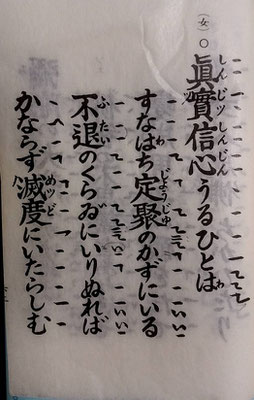 (女)○
眞實信心うるひとは
すなはち定聚のかずにいる
不退のくらゐにいりぬれば
かならず滅度にいたらしむ